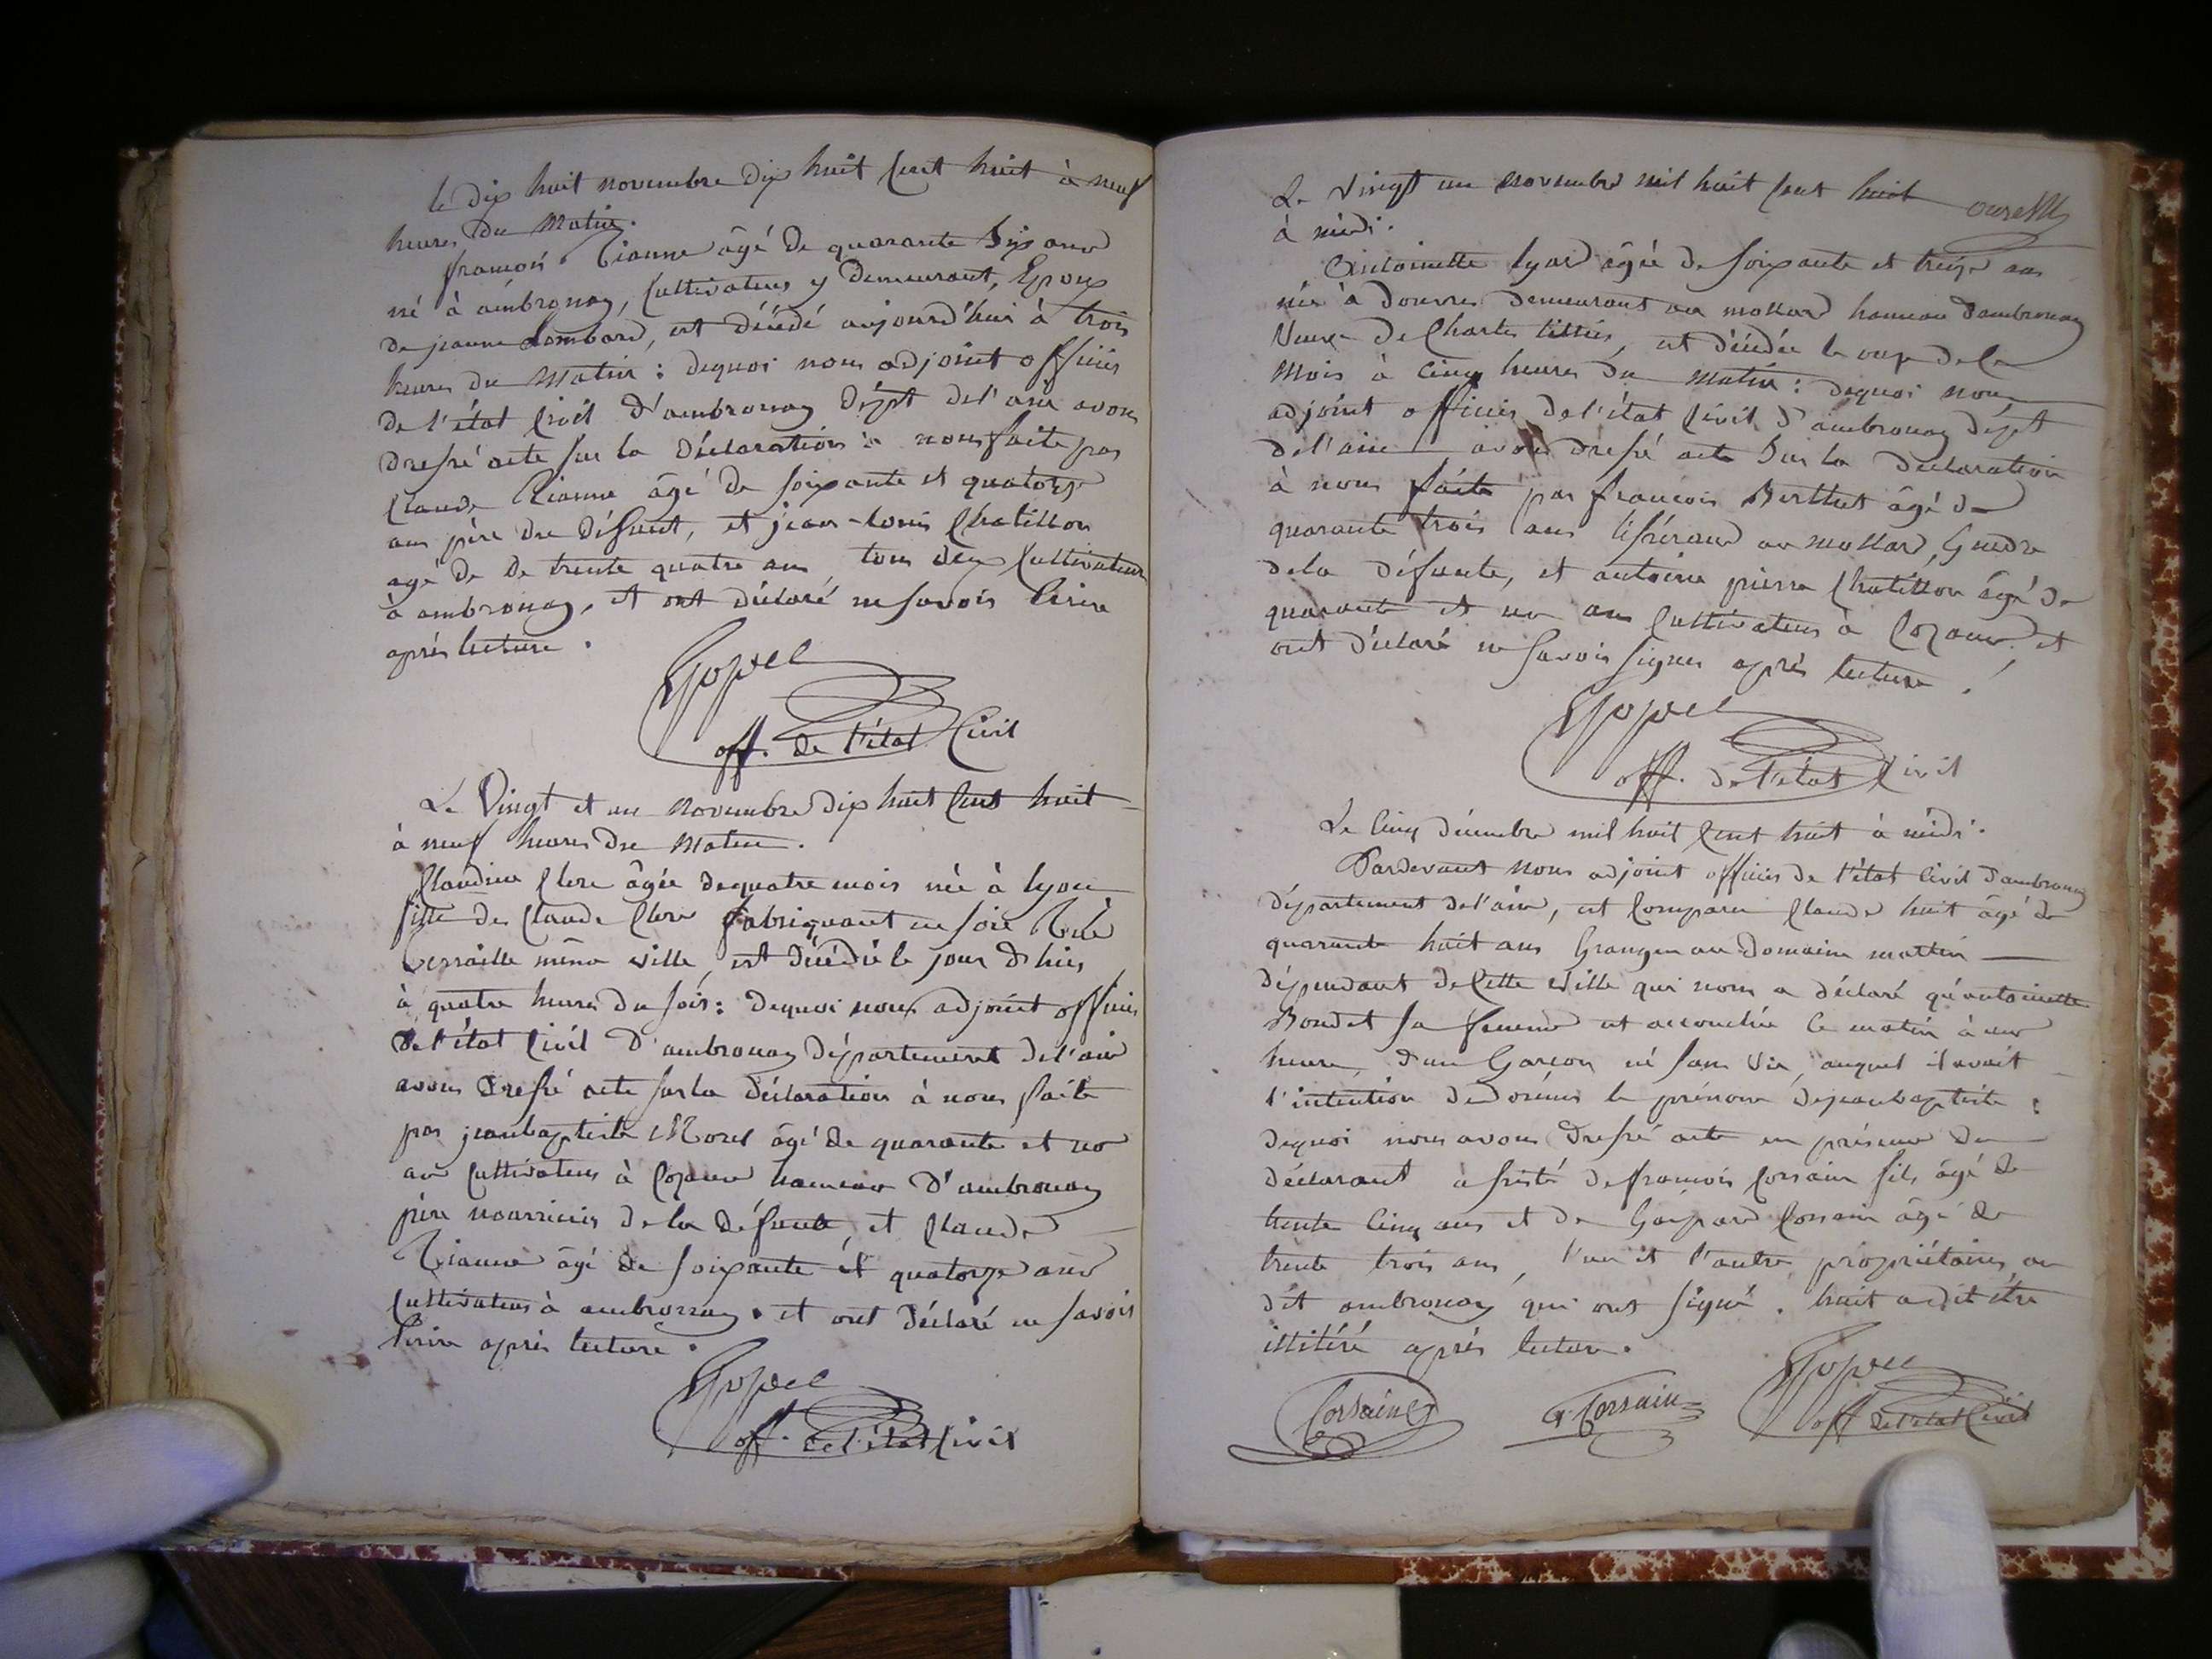 le dix huit novembre dix huit cent huit à neuf
heures du matin.
françois Tianne âgé de quarante six ans
né à ambronay, cultivateur y demeurant, Epoux
de jeanne Lombard, est décédé aujourd'hui à trois
heures du matin : dequoi nous adjoint officier
de l'état civil d'ambronay dépt de l'ain avons
dressé acte sur la déclaration à nous faite par
claude Tianne âgé de soixante et quatorze
ans père du défunt, et jean-louis Chatillon
agé de de trente quatre ans tous deux cultivateurs
à ambronay, et ont déclaré ne savoir écrire
après lecture.
off. de l'état Civil
Le Vingt et un novembre dix huit cent huit
à neuf heures du matin.
Claudine Clere âgée dequatre mois née à lyon
fille de claude Clere fabriquant en soie rue
même ville, est décédée le jour d'hier
à quatre heures du soir : dequoi nous adjoint officier
de l'état civil d'ambronay département de l'ain
avons dressé acte sur la déclaration à nous faite
par jeanbaptiste Morel âgé de quarante et un
ans cultivateur à cozance hameau d'ambronay
père nourricier de la défunte, et claude
Tianne âgé de soixante et quatorze ans
cultivateur à ambronay. et ont déclaré ne savoir
écrire après lecture.
off. de l'état civil
Le vingt un novembre mil huit cent huit
à midi.
Antoinette lyard âgée de soixante et treize ans
née à douvres demeurant au mollard hameau d'ambronay
Veuve de Charles , est décédée le onze de ce
mois à cinq heures du matin : dequoi nous
adjoint officier de l'état civil d'ambronay dépt
de l'ain avons dressé acte sur la déclaration
à nous faite par françois Berthet âgé de
quarante trois ans tisserand au mollard, Gendre
dela défunte, et antoine pierre Chatillon âgé de
quarante et un ans cultivateur à cozance, et
ont déclaré ne savoir signer après lecture.
off. de l'état civil
Le cinq décembre mil huit cent huit à midi.
Pardevant nous adjoint officier de l'état civil d'ambronay
département de l'ain, est comparu claude huit âgé de
quarante huit ans Granger au domaine mattin
dépendant de cette ville qui nous a déclaré qu'antoinette
Bondet sa femme est accouchée ce matin à une
heure, d'un Garçon né sans vie, auquel il avait
l'intention de donner le prénom de jeanbaptiste :
dequoi nous avons dressé acte en présence du
déclarant assisté de françois corsain fils âgé de
trente cinq ans et de Gaspard corsain âgé de
trente trois ans, l'un et l'autre propriétaires au
dit ambronay qui ont signé. huit a dit être
illitéré après lecture.
Corsain G. Corsain
off de l'état civil